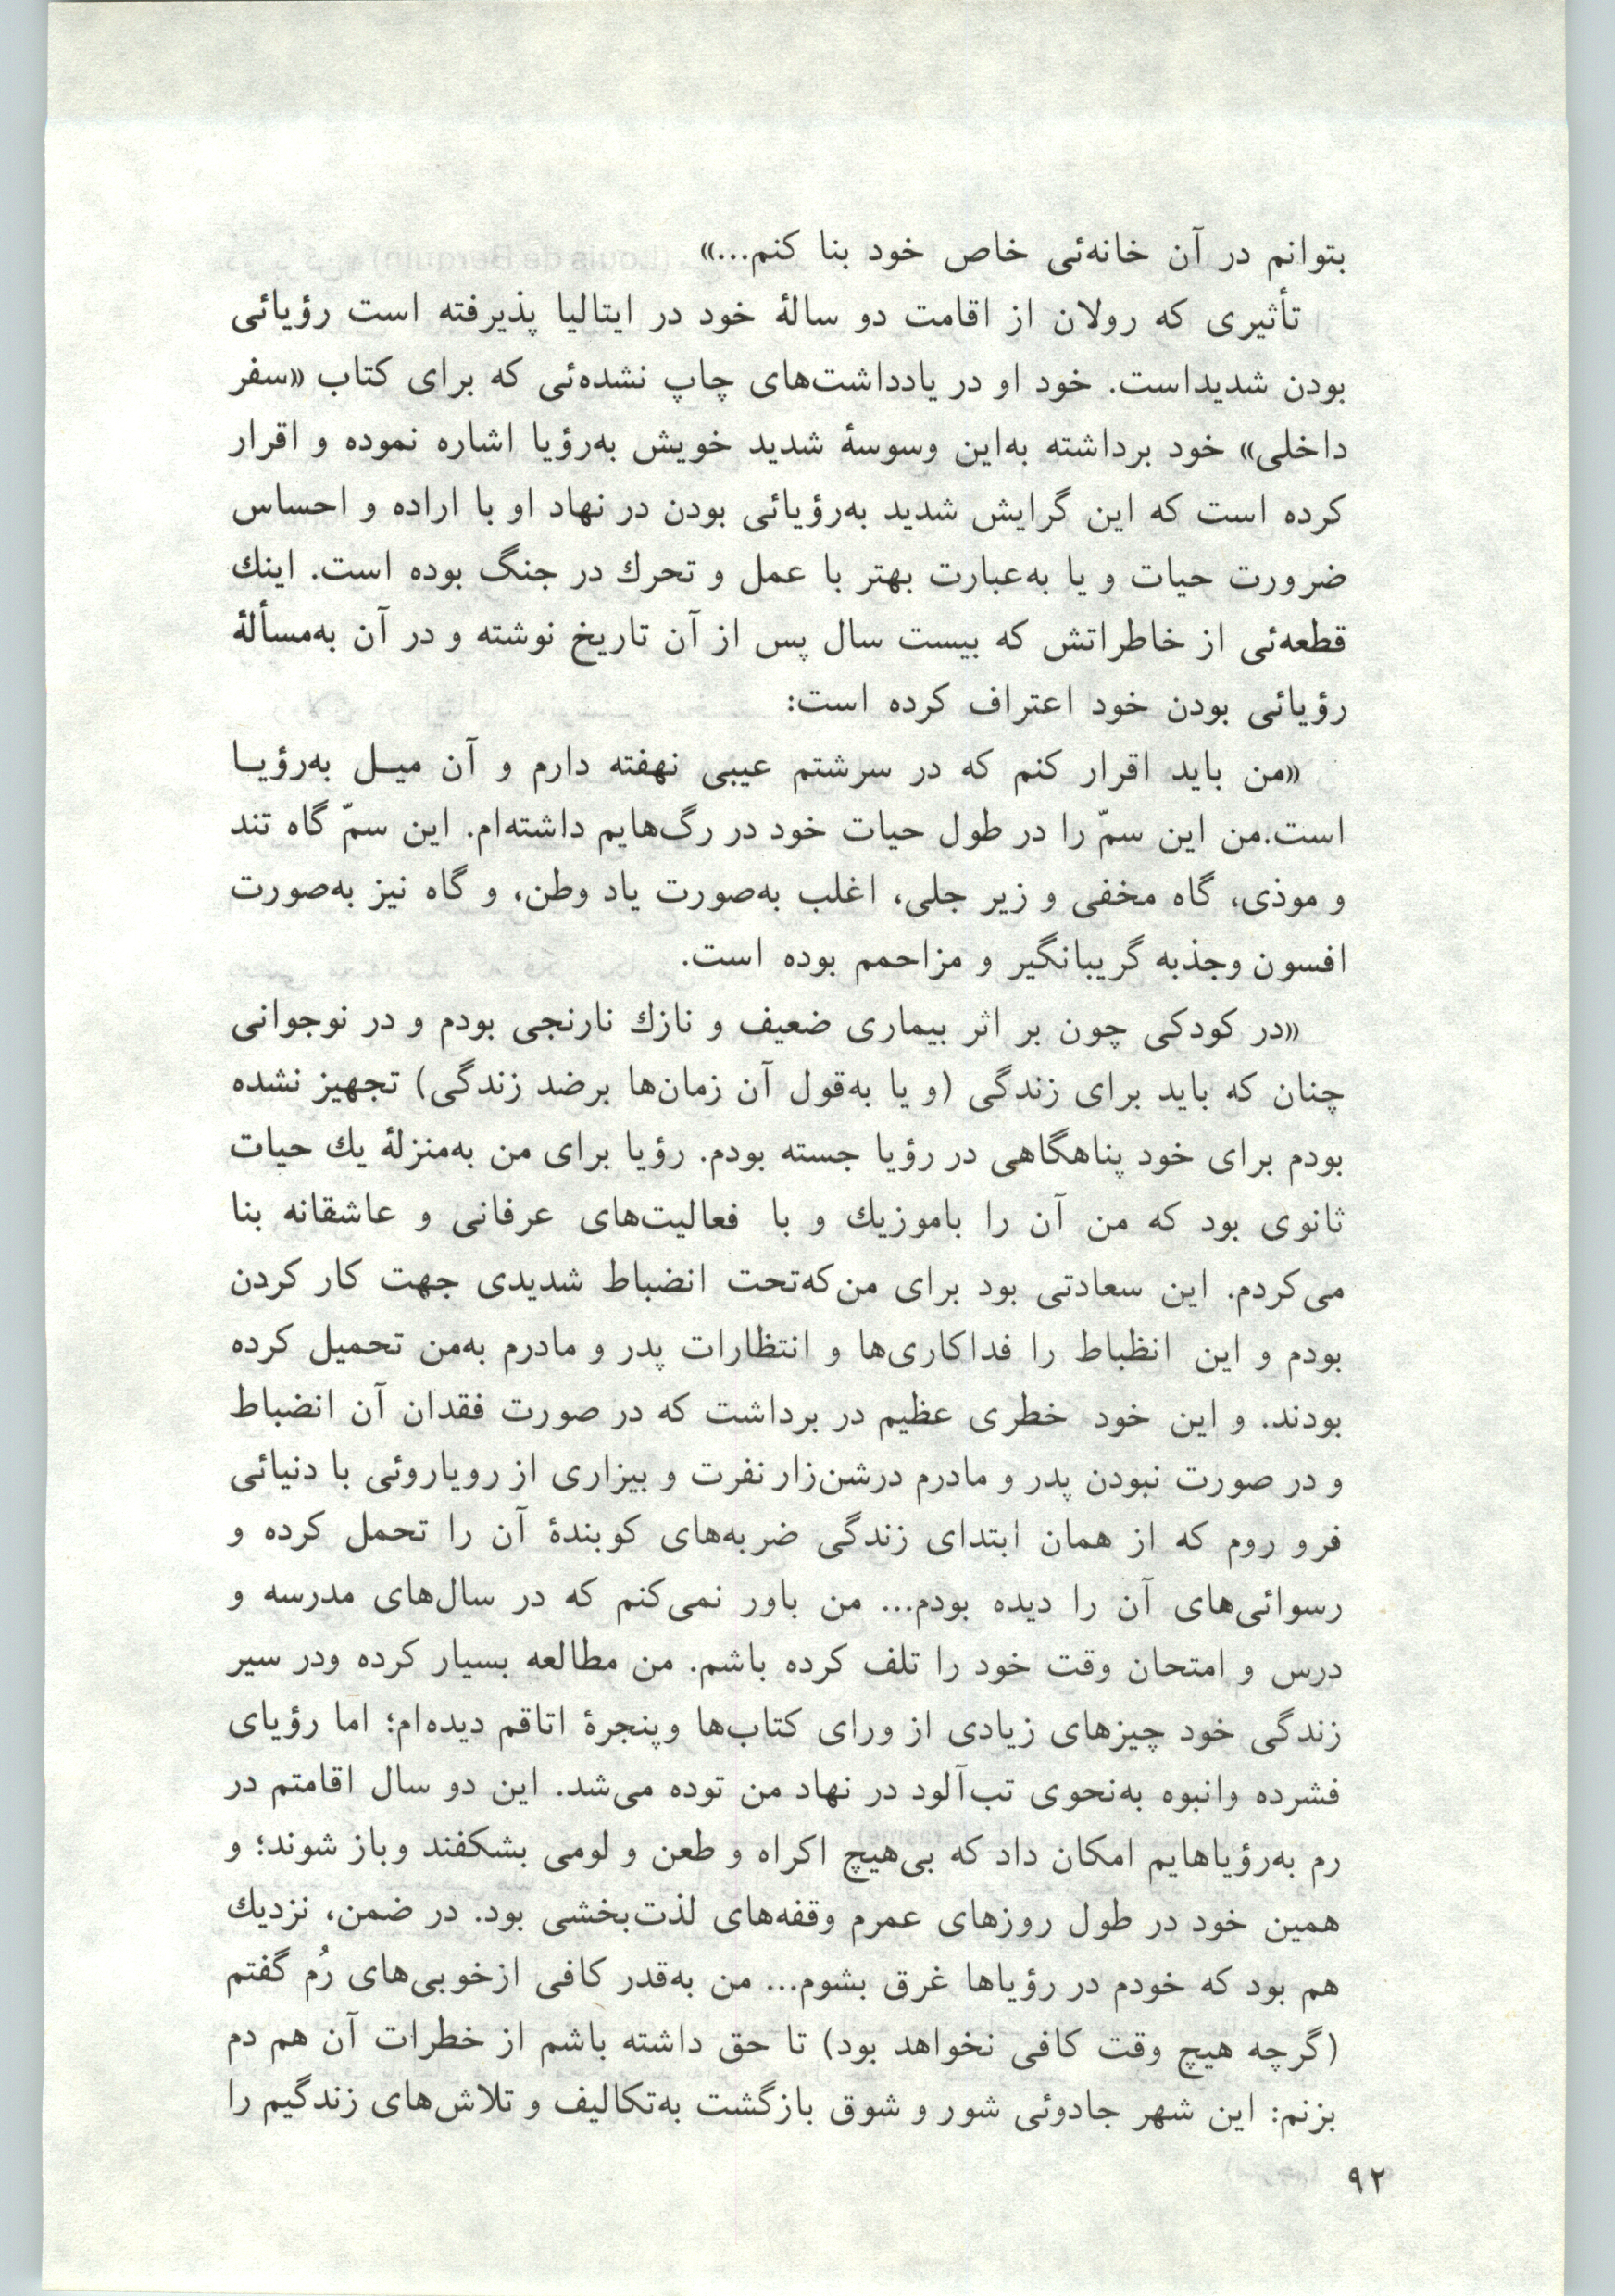 بتوانم در آن خانه‌ئی خاص خود بنا کنم...»
تأثیری که رولان از اقامت دو سالهٔ خود در ایتالیا پذیرفته است رؤیائی
بودن شدیداست. خود او در یادداشت‌های چاپ نشده‌ئی که برای کتاب «سفر
داخلی» خود برداشته به‌این وسوسهٔ شدید خویش به‌رؤیا اشاره نموده و اقرار
کرده است که این گرایش شدید به‌رؤیائی بودن در نهاد او با اراده و احساس
ضرورت حیات و یا به‌عبارت بهتر با عمل و تحرك در جنگ بوده است. اینك
قطعه‌ئی از خاطراتش که بیست سال پس از آن تاریخ نوشته و در آن به‌مسألهٔ
رؤیائی بودن خود اعتراف کرده است:
«من باید اقرار کنم که در سرشتم عیبی نهفته دارم و آن میـل به‌رؤیـا
است.من این سمّ را در طول حیات خود در رگ‌هایم داشته‌ام. این سمّ گاه تند
و موذی، گاه مخفی و زیر جلی، اغلب به‌صورت یاد وطن، و گاه نیز به‌صورت
افسون وجذبه گریبانگیر و مزاحمم بوده است.
«در کودکی چون بر اثر بیماری ضعیف و نازك نارنجی بودم و در نوجوانی
چنان که باید برای زندگی (و یا به‌قول آن زمان‌ها برضد زندگی) تجهیز نشده
بودم برای خود پناهگاهی در رؤیا جسته بودم. رؤیا برای من به‌منزلهٔ یك حیات
ثانوی بود که من آن را باموزیك و با فعالیت‌های عرفانی و عاشقانه بنا
می‌کردم. این سعادتی بود برای من‌که‌تحت انضباط شدیدی جهت کار کردن
بودم و این انظباط را فداکاری‌ها و انتظارات پدر و مادرم به‌من تحمیل کرده
بودند. و این خود خطری عظیم در برداشت که در صورت فقدان آن انضباط
و در صورت نبودن پدر و مادرم درشن‌زار نفرت و بیزاری از رویاروئی با دنیائی
فرو روم که از همان ابتدای زندگی ضربه‌های کوبندهٔ آن را تحمل کرده و
رسوائی‌های آن را دیده بودم... من باور نمی‌کنم که در سال‌های مدرسه و
درس و امتحان وقت خود را تلف کرده باشم. من مطالعه بسیار کرده ودر سیر
زندگی خود چیزهای زیادی از ورای کتاب‌ها وپنجرهٔ اتاقم دیده‌ام؛ اما رؤیای
فشرده وانبوه به‌نحوی تب‌آلود در نهاد من توده می‌شد. این دو سال اقامتم در
رم به‌رؤیاهایم امکان داد که بی‌هیچ اکراه و طعن و لومی بشکفند وباز شوند؛ و
همین خود در طول روزهای عمرم وقفه‌های لذت‌بخشی بود. در ضمن، نزدیك
هم بود که خودم در رؤیاها غرق بشوم... من به‌قدر کافی ازخوبی‌های رُم گفتم
(گرچه هیچ وقت کافی نخواهد بود) تا حق داشته باشم از خطرات آن هم دم
بزنم: این شهر جادوئی شور و شوق بازگشت به‌تکالیف و تلاش‌های زندگیم را
۹۲